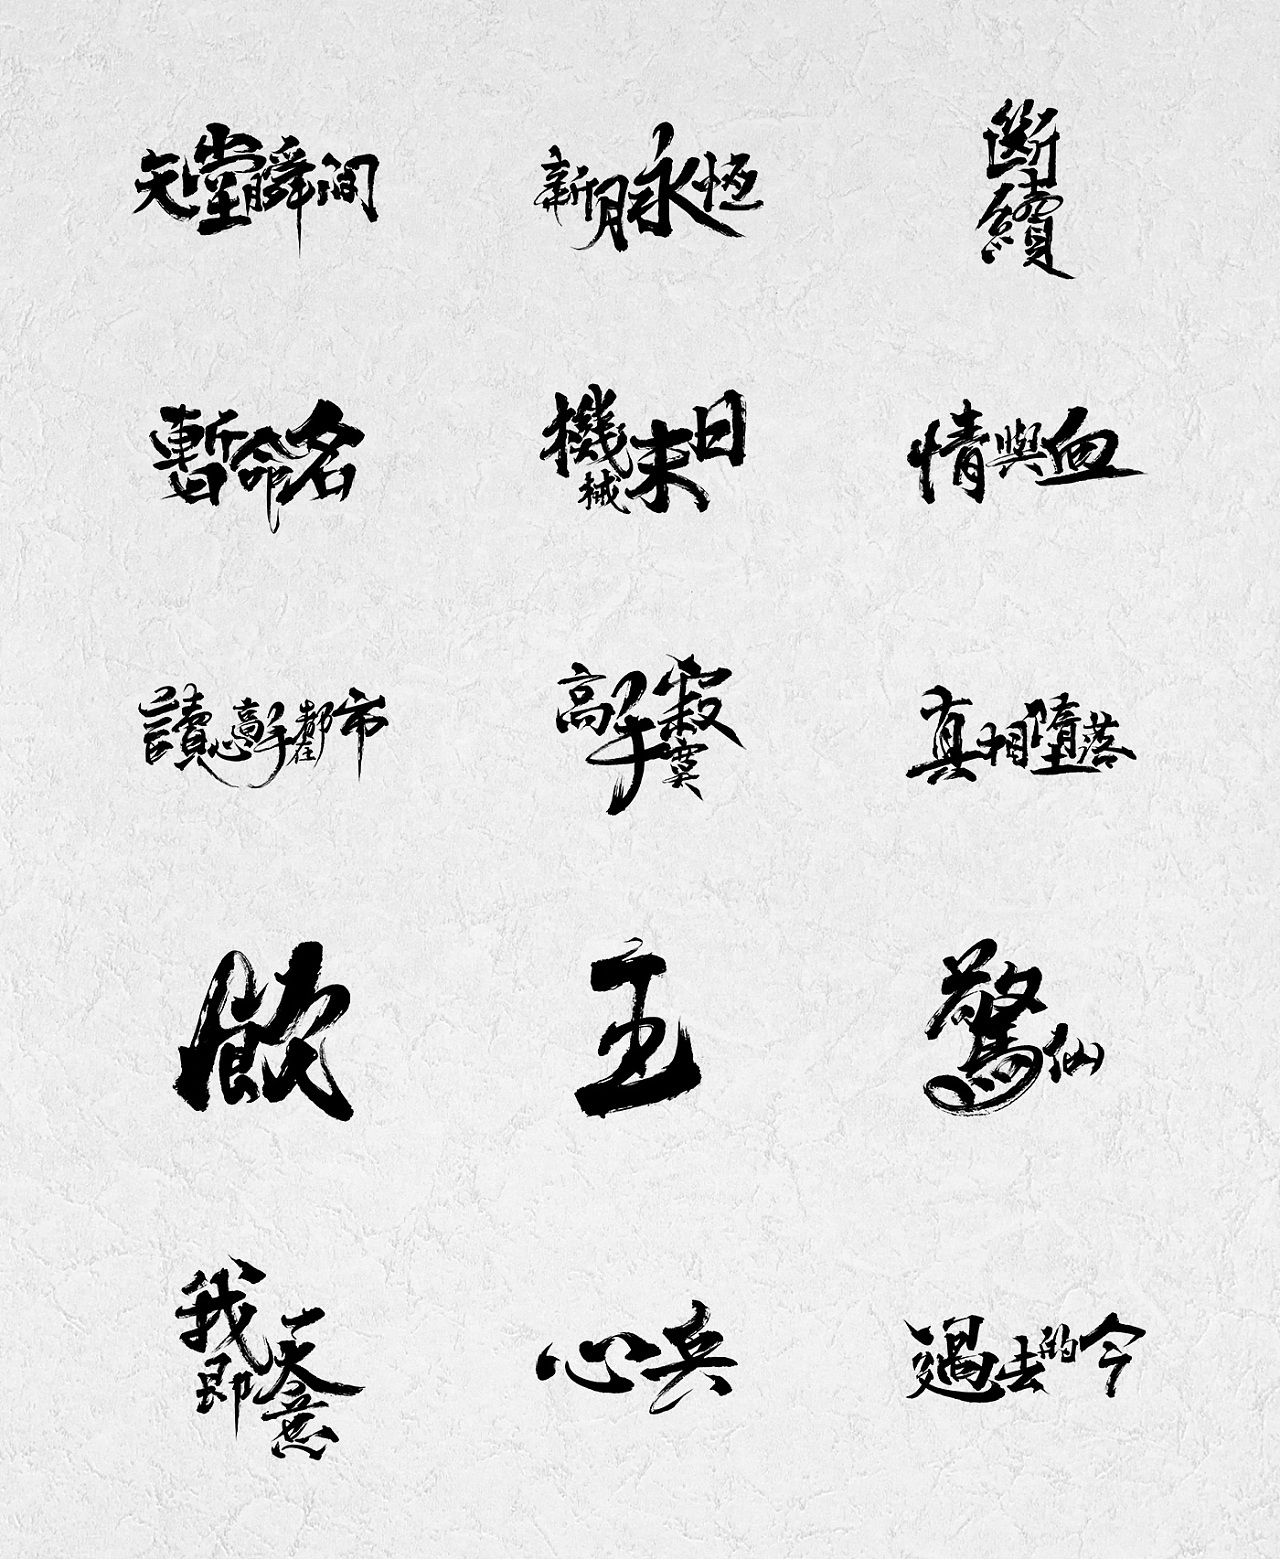 天堂瞬间
新月永恆
斷續
暫命名
機械末日
情與血
讀心高手在都市
高手寂寞
真相墮落
飲
主
驚仙
我即天意
心兵
過去的今